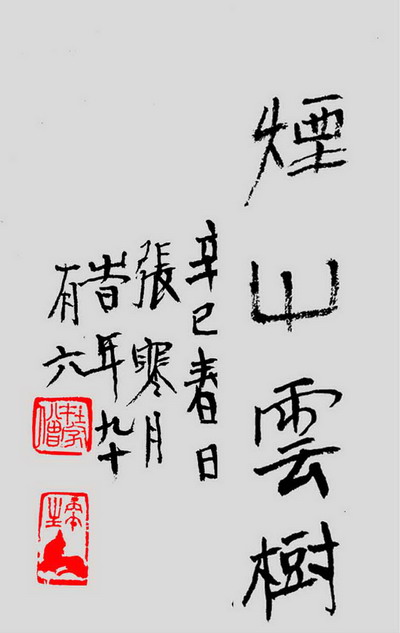 煙山雲樹
辛巳春日
張寒月
旹年九十
有六